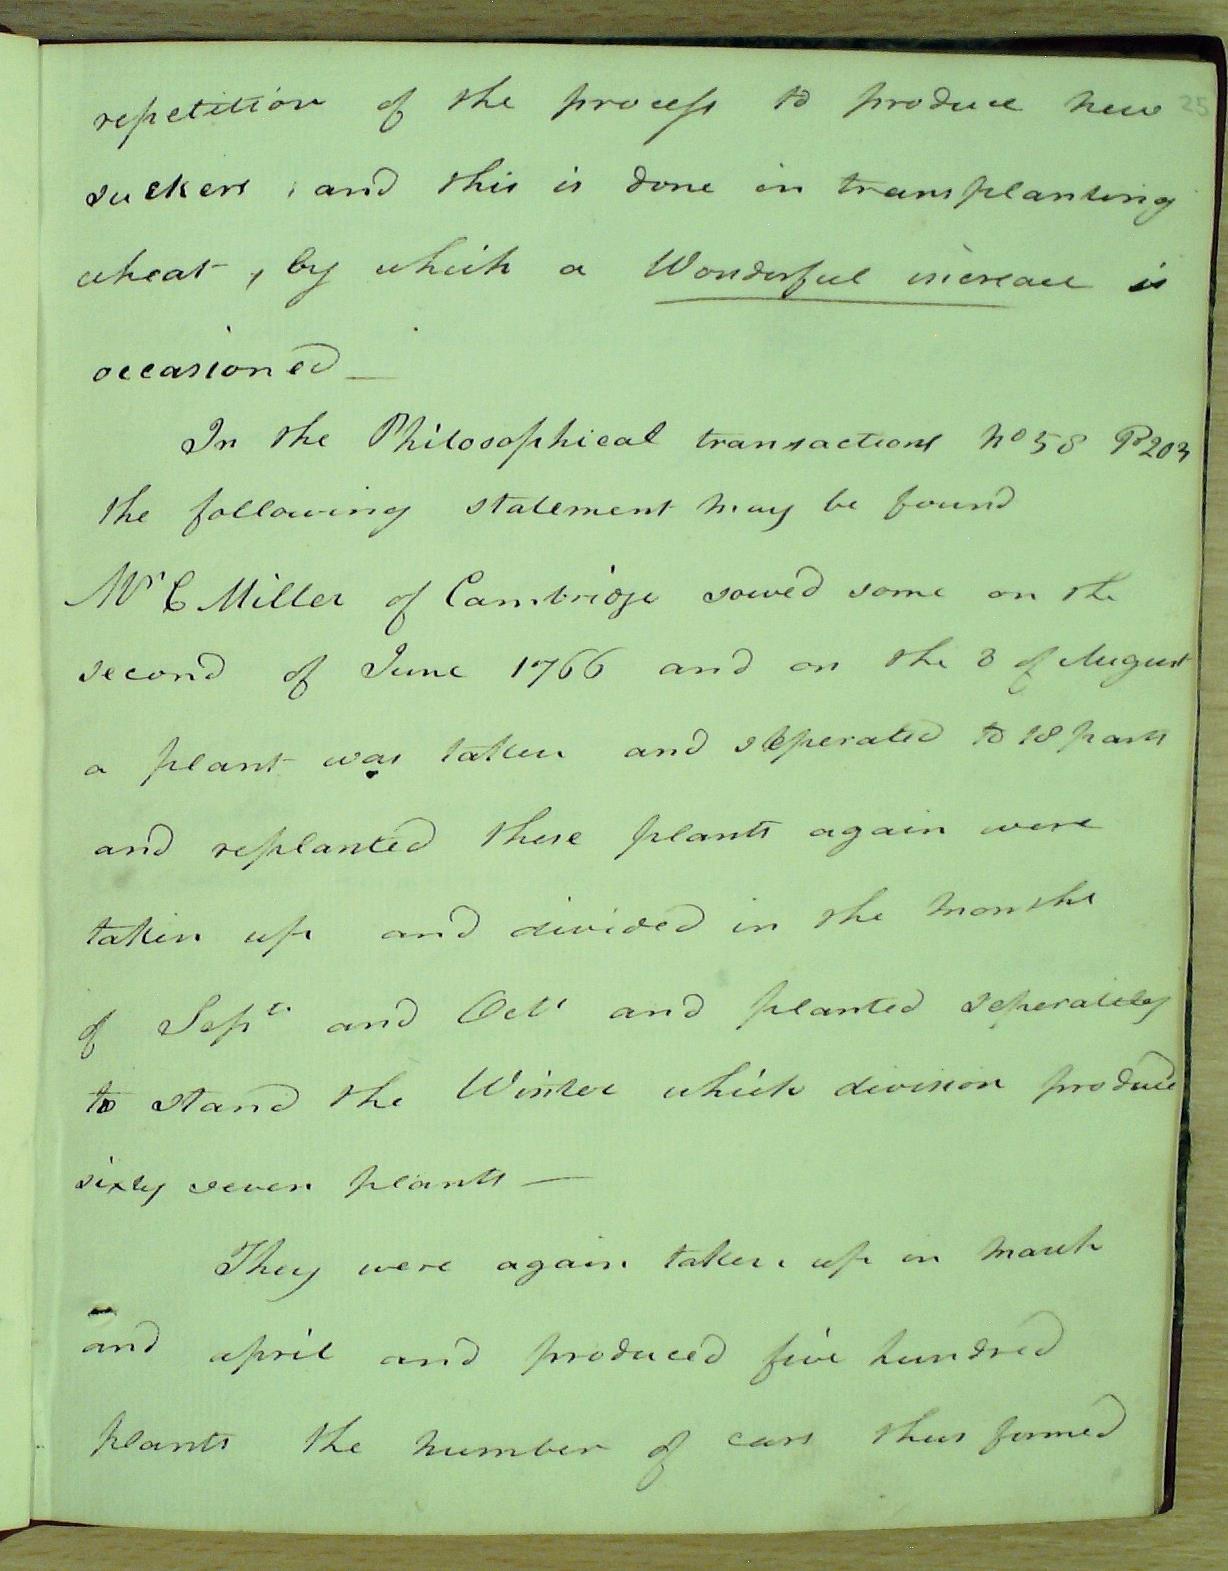 25
repetition of the process to produce new
suckers; and this is done in transplanting
wheat, by which a Wonderful increase is
occasioned —
In the Philosophical transactions No 58 P 203
the following statement may be found
Mr C Miller of Cambridge sowed some on the
second of June 1766 and on the 8 of August
a plant was taken and seperated to 18 parts
and replanted these plants again were
taken up and divided in the months
of Septr and Octr and planted seperately
to stand the Winter which division produced
sixty seven plants —
They were again taken up in march
and april and produced five hundred
plants the number of ears thus formed